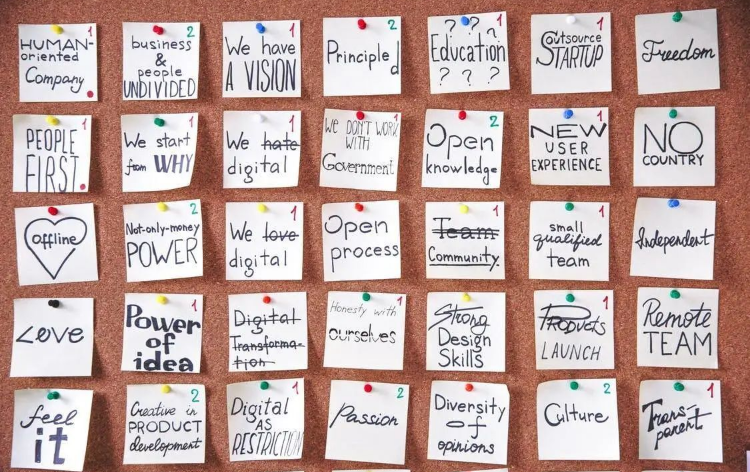 1
HUMAN-
oriented
Company
2
business
&
people
UNDIVIDED
1
We have
A VISION
2
Principled
1
? ? ?
Education
? ? ?
1
Outsource
STARTUP
Freedom
1
PEOPLE
FIRST
1
We start
from WHY
1
We hate
digital
1
We DON'T WORK
WITH
Government
2
Open
knowledge
1
NEW
USER
EXPERIENCE
NO
COUNTRY
offline
2
Not-only-money
POWER
1
We love
digital
Open
process
1
Team
Community
1
small
qualified
team
Independent
Love
1
Power
of
idea
1
Digital
Transforma-
tion
1
Honesty with
ourselves
Strong
Design
Skills
1
Products
LAUNCH
Remote
TEAM
feel
it
2
Creative in
PRODUCT
development
1
Digital
AS
RESTRICTION
2
Passion
Diversity
of
opinions
2
Culture
1
Trans-
parent